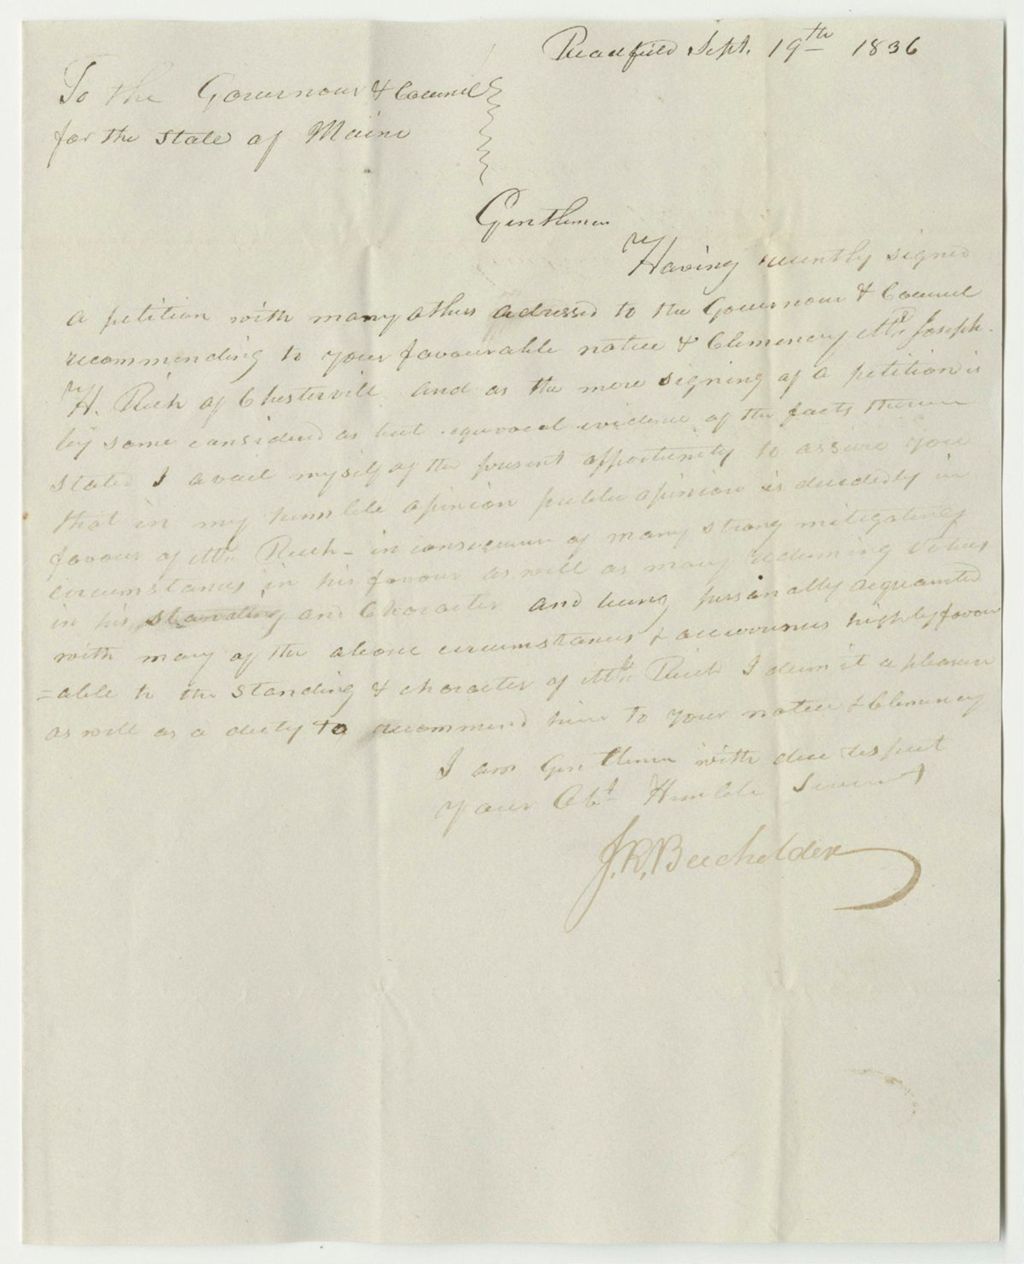 Readfield Sept. 19th 1836
To the Governour & Council
for the State of Maine
Gentlemen
Having recently signed
a petition with many others adressed to the Governour & Council
recommending to your favourable notice & Clemency Mr. Joseph
H. Rich of Chesterville and as the mere signing of a petition is
by some considered as but equivocal evidence of the facts therein
stated I avail myself of the present opportunity to assure you
that in my humble opinion public opinion is decidedly in
favour of Mr. Rich - in consequence of many strong mitigating
circumstances in his favour as well as many redeeming
in his standing and Character and being personally acquainted
with many of the above circumstances & highly favour
=able to the standing & character of Mr. Rich I deem it a pleasure
as well as a duty to recommend him to your notice & Clemency
I am Gentlemen with due respect
your Obt. Humble Servent
J. R. Bachelder